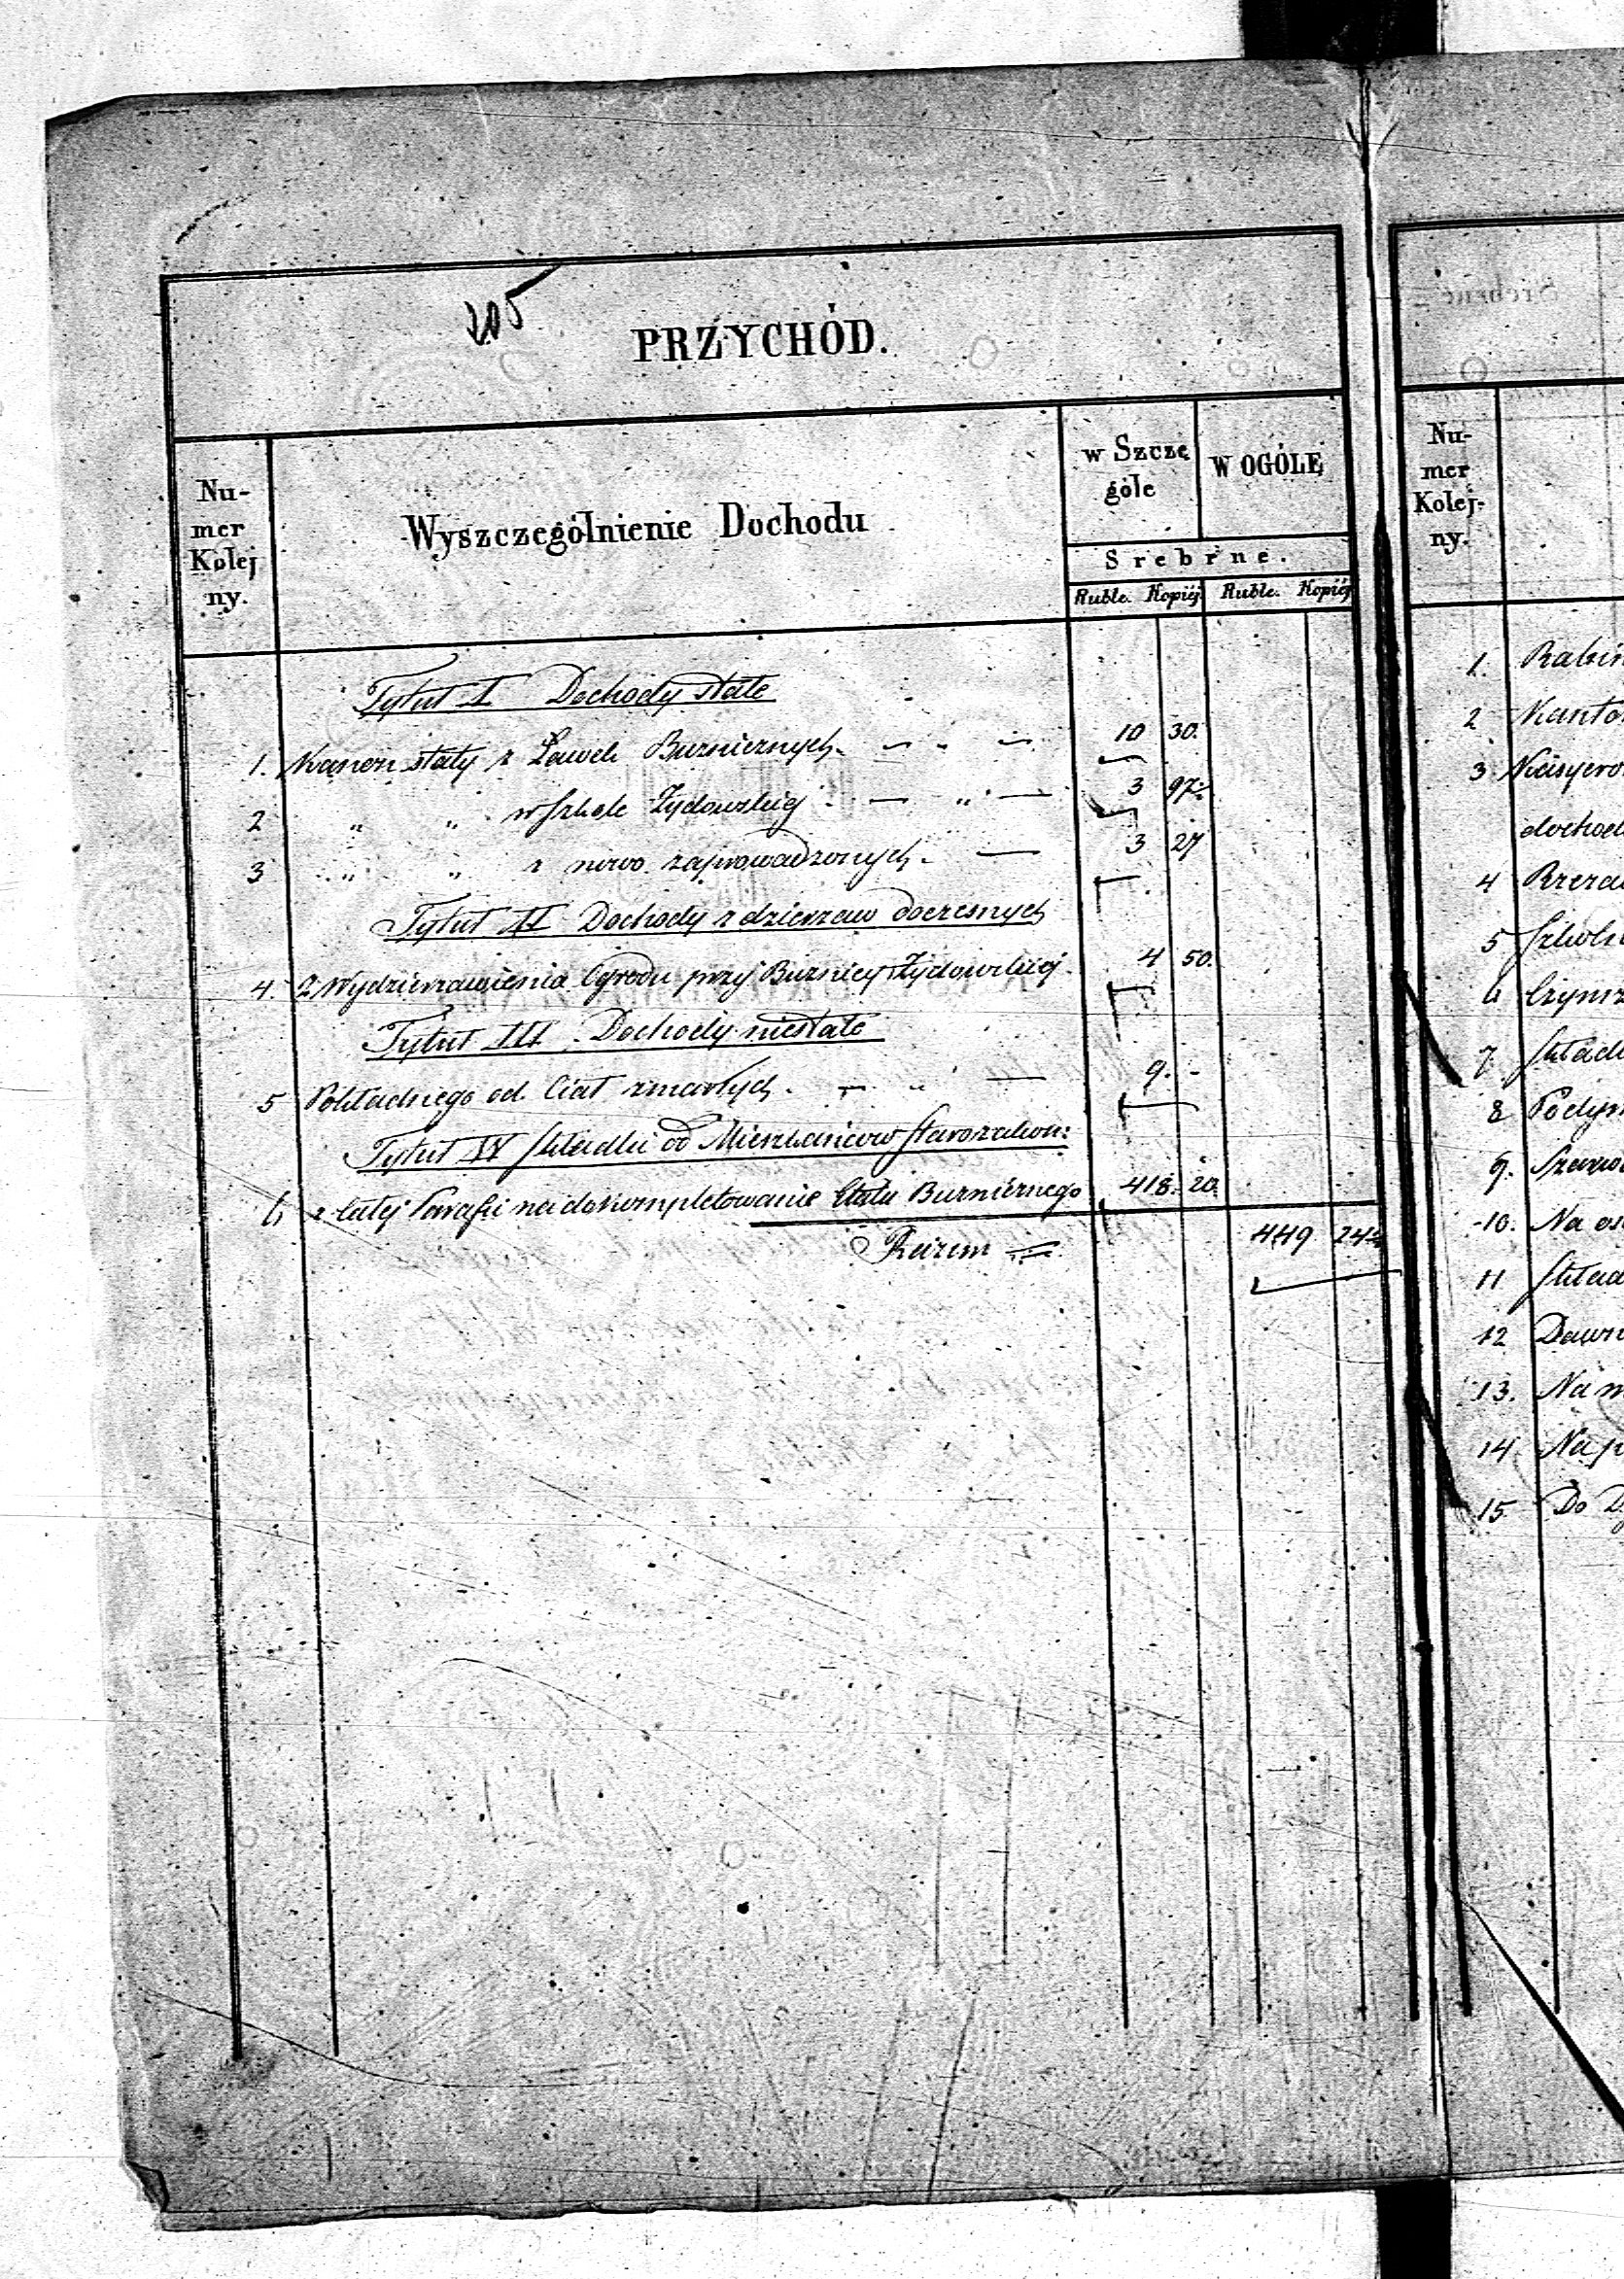 205
PRZYCHÓD.
Nu-
mer
Kolej
ny.
Wyszczególnienie Dochodu
w Szcze
góle
W OGÓLE
Srebrne.
Ruble. Kopiej Ruble. Kopiej
Tytuł I Dochody stałe
1. Kanon stały z Ławek Buznicznych 10 30.
2 „ „ w szkole Żydowskiej „ 3 97
3 „ „ z nowo zaprowadzonych 3 27
Tytuł II Dochody z dzierzaw doczesnych
4. Z Wydzierzawienia Ogrodu przy Buznicy Żydowskiej 4 50.
Tytuł III Dochody niestałe
5 Pokładnego od Ciał zmarłych „ 9. -
Tytuł IV Składki od Mieszkańcow Starozakon:
6 z całej Parafii na dokompletowanie Etatu Buznicznego 418. 20.
Razem 449 24
Nu-
mer
Kolej-
ny.
1. Rabin
2 Kanto
3
dochod
4
5 Szkol
6 Czynsz
7. Skład
8 Podym
9.
10. Na
11 Skład
12 Dawn
13. Na
14 Na
15 Do